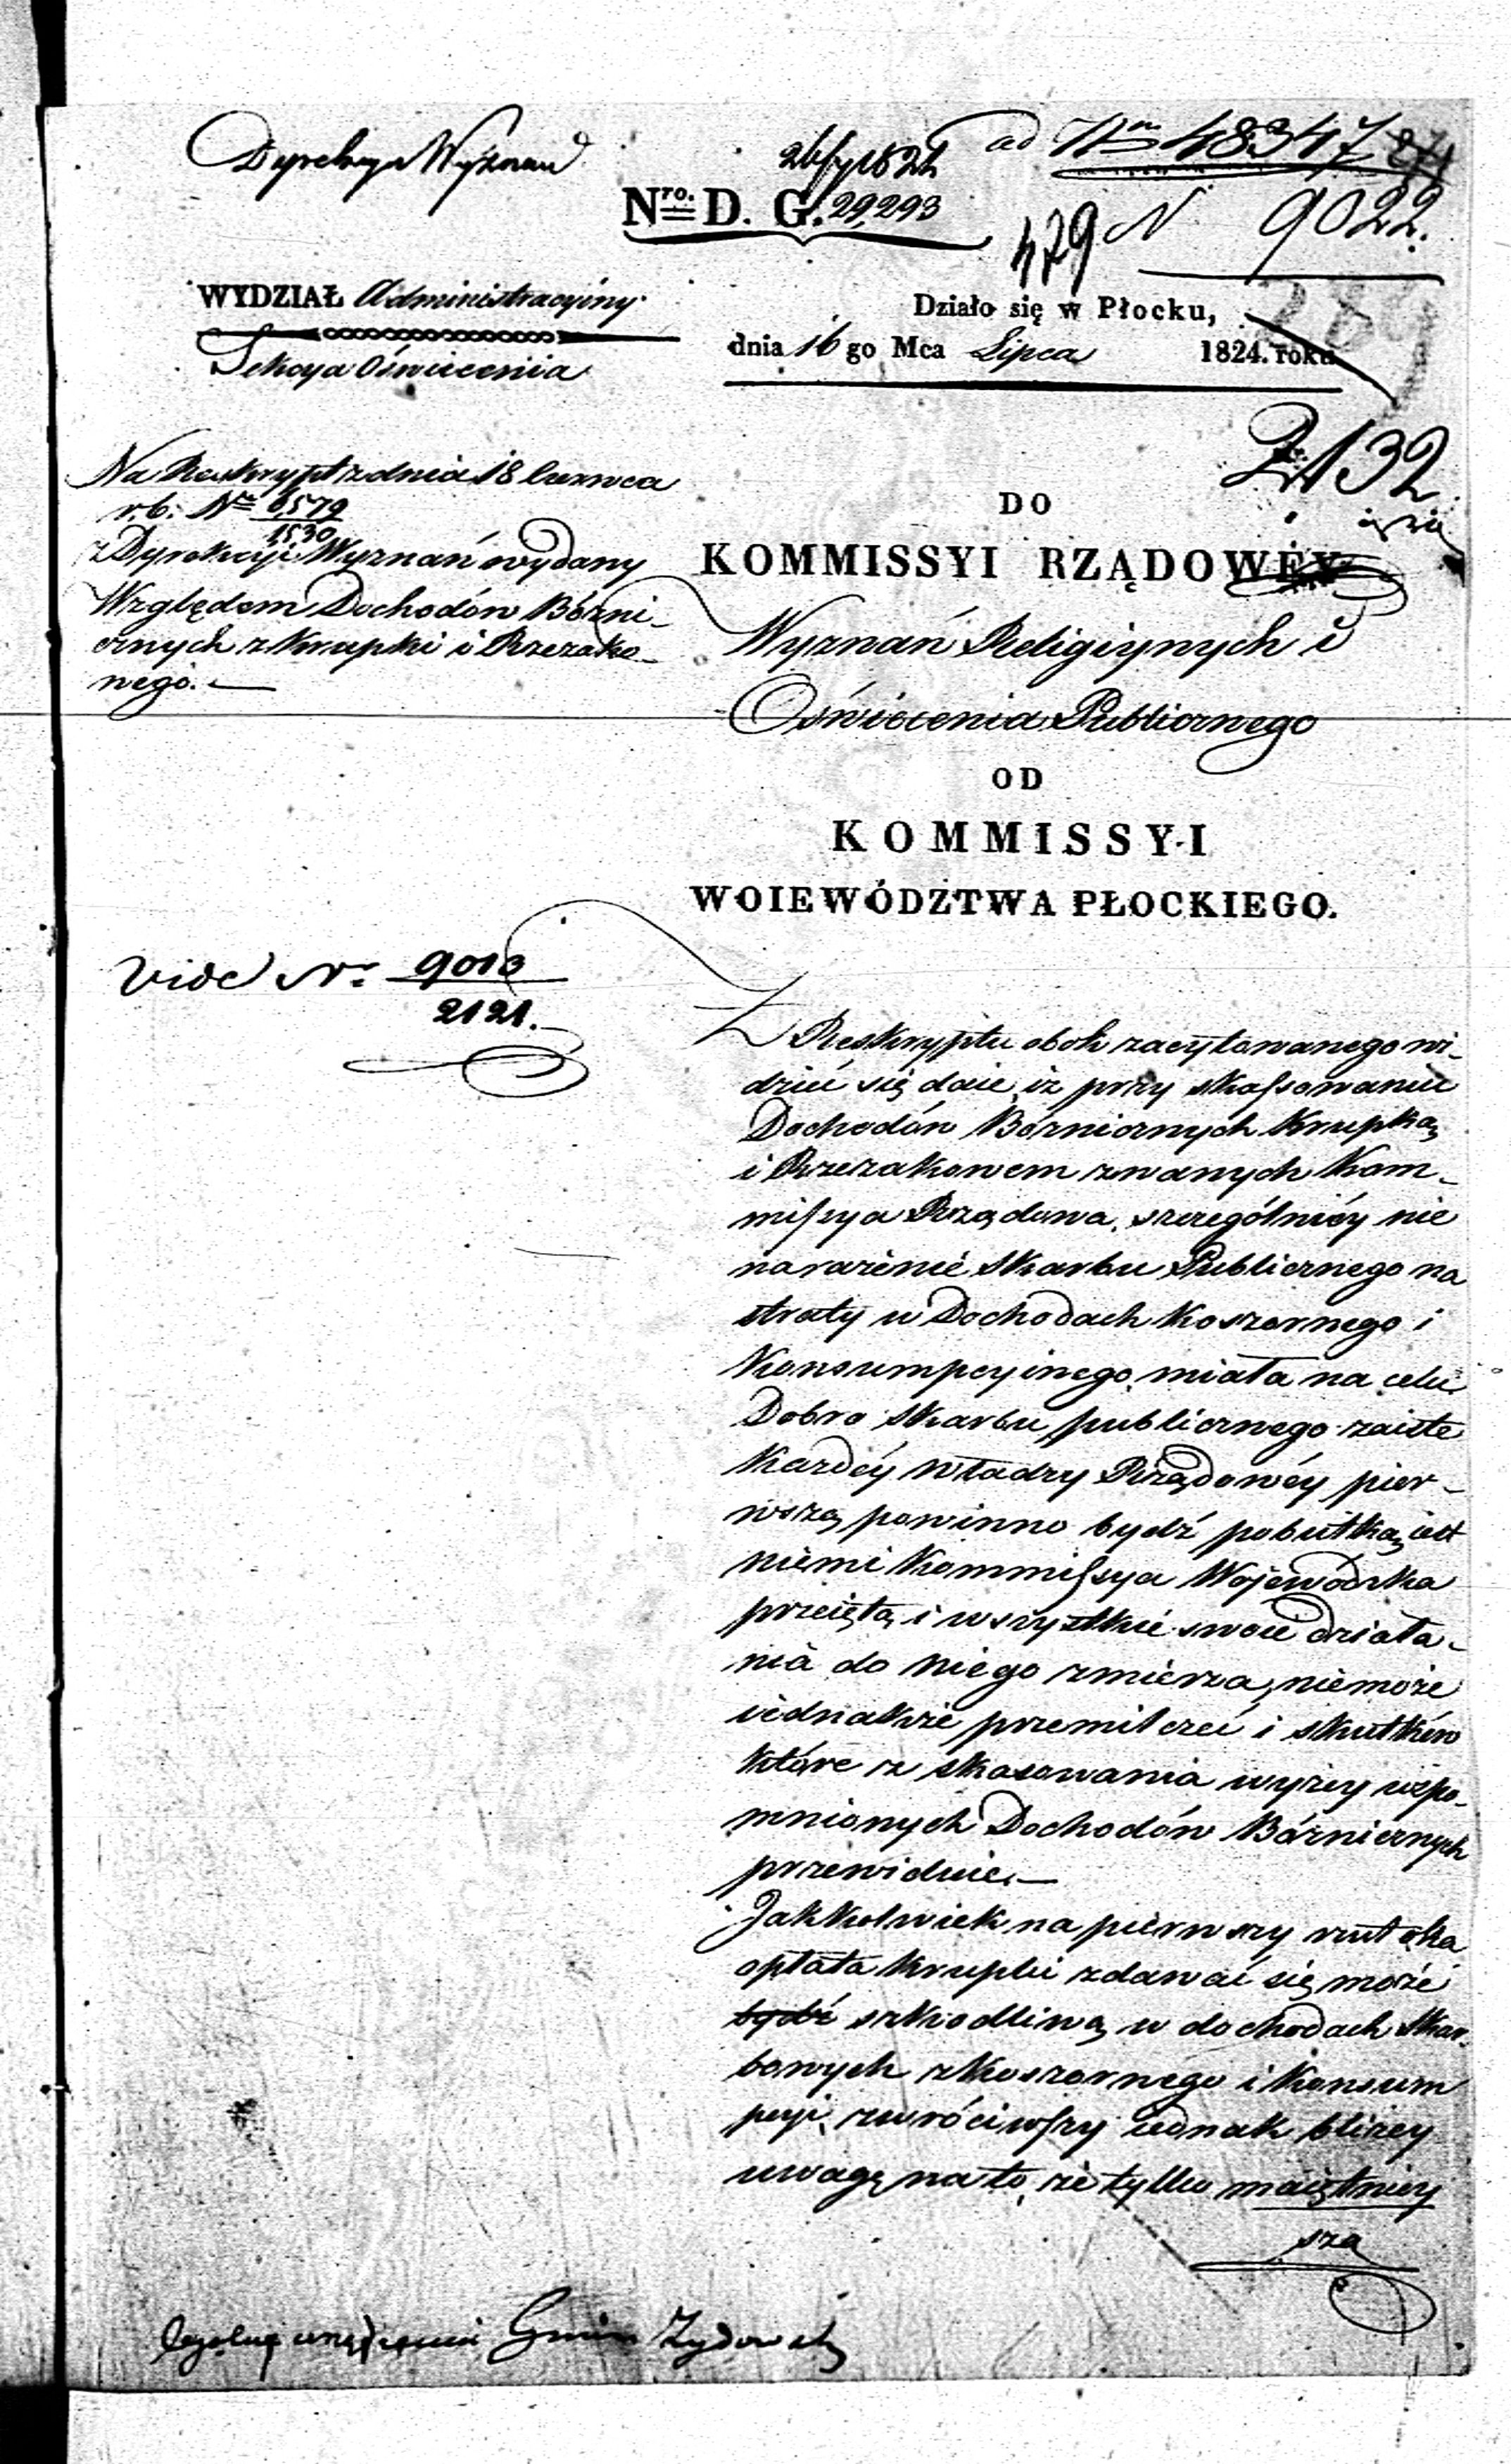 Dyrekcya Wyznań
ad Nrm 48347
26/7 1824
Nro. D. G. 29,293
479 N 9022.
WYDZIAŁ Administracyiny
Działo się w Płocku,
Sekcya Oświecenia
dnia 16 go Mca Lipca 1824. roku
132
Na Reskrypt z dnia 18 Czerwca
r. b. Nro 6,579
1530
z Dyrekcyi Wyznań wydany
Względem Dochodów Bóżni-
cznych z Krupki i Rzezako-
nego.
DO
KOMMISSYI RZĄDOWÉY
Wyznań Religiynych i
Oświecenia Publicznego
OD
KOMMISSYI
WOIEWÓDZTWA PŁOCKIEGO.
Vide Nr. 9013
2121.
Z Reskryptu obok zacytowanego wi-
dzieć się daie, iż przy skassowaniu
Dochodów Bóżnicznych Krupką
i Rzezakowem zwanych Kom-
missya Rządowa, szczególniéy nie
narażenie Skarbu Publicznego na
straty w Dochodach Koszernego i
Konsumpcyinego miała na celu
Dobro skarbu publicznego zaiste
Każdéy Władzy Rządowéy pier-
wszą powinno bydź pobutką, iest
niemi Kommissya Wojewódzka
przeiętą i wszystkie swoie działa-
nia do niego zmierza, niemoże
iednakże przemilczeć i skutków
które z skasowania wyżey wspo-
mnionych Dochodów Bóżnicznych
przewiduie.
Jakkolwiek na pierwszy rzut oka
opłata Krupki zdawać się może
bydź szkodliwą w dochodach Skar-
bowych z Koszernego i Konsum
pcyi, zwróciwszy iednak bliżey
uwagę na to, że tylko maiętniey
sza
urządzenia Gmin Żydowsk.